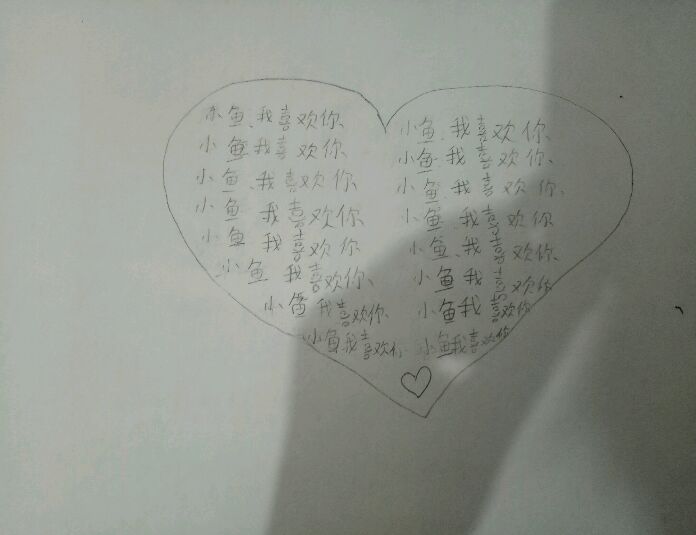 小鱼、我喜欢你、
小鱼我喜欢你、
小鱼、我喜欢你
小鱼 我喜欢你、
小鱼 我喜欢你
小鱼 我喜欢你、
小鱼 我喜欢你、
小鱼我喜欢你
小鱼、我喜欢你、
小鱼、我喜欢你、
小鱼、我喜欢你、
小鱼、我喜欢你
小鱼、我喜欢你、
小鱼我喜欢你
小鱼我喜欢你
小鱼我喜欢你